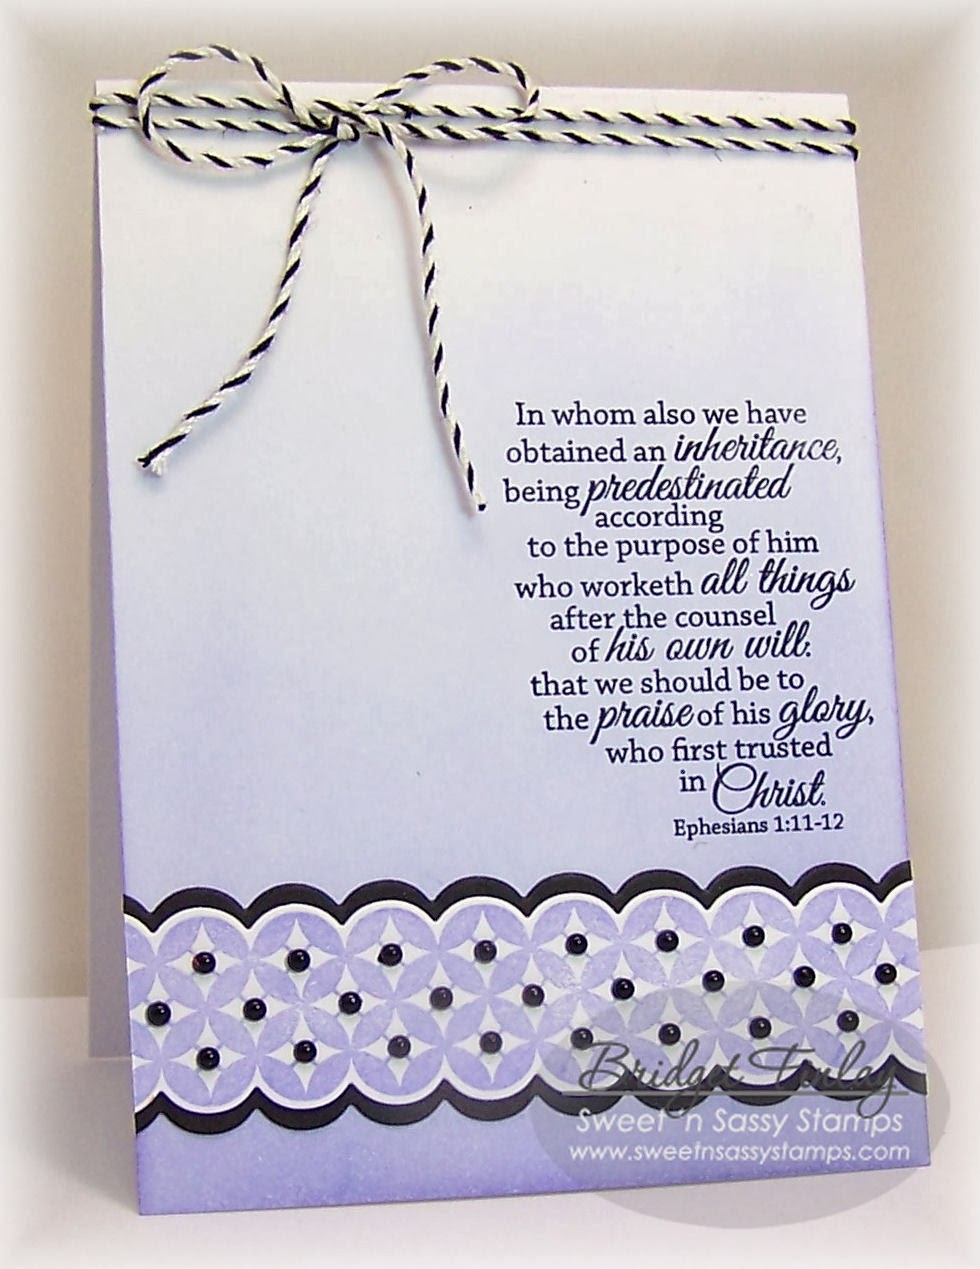 In whom also we have
obtained an inheritance,
being predestinated
according
to the purpose of him
who worketh all things
after the counsel
of his own will:
that we should be to
the praise of his glory,
who first trusted
in Christ.
Ephesians 1:11-12
Bridget Finlay
Sweet 'n Sassy Stamps
www.sweetnsassystamps.com